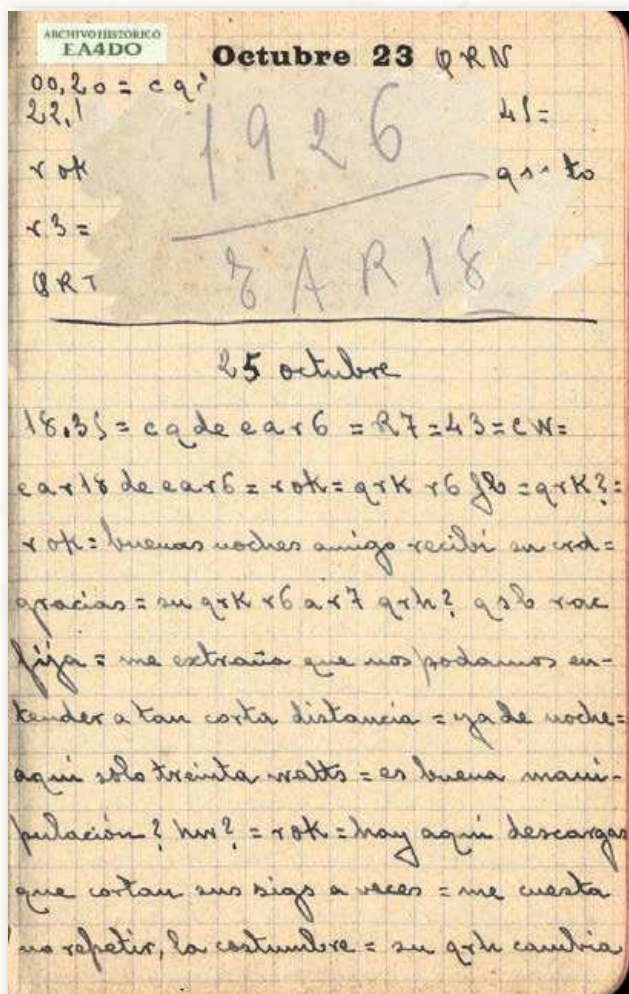 ARCHIVO HISTÓRICO
EA4DO
Octubre 23 QRN
00,20 = cq
22,1 41=
rok to
r3 =
QRT
1926
EAR18
25 octubre
18.35 = cq de ear6 = R7 = 43 = CW =
ear18 de ear6 = rok = qrk r6 fb = qrk? =
rok = buenas noches amigo recibí su crd =
gracias = su qrk r6 a r7 qrh? qsb rac
fija = me extraña que nos podamos en-
tender a tan corta distancia = ya de noche =
aquí solo treinta watts = es buena mani-
pulación? hw? = rok = hay aquí descargas
que cortan sus sigs a veces = me cuesta
no repetir, la costumbre = su qrh cambia